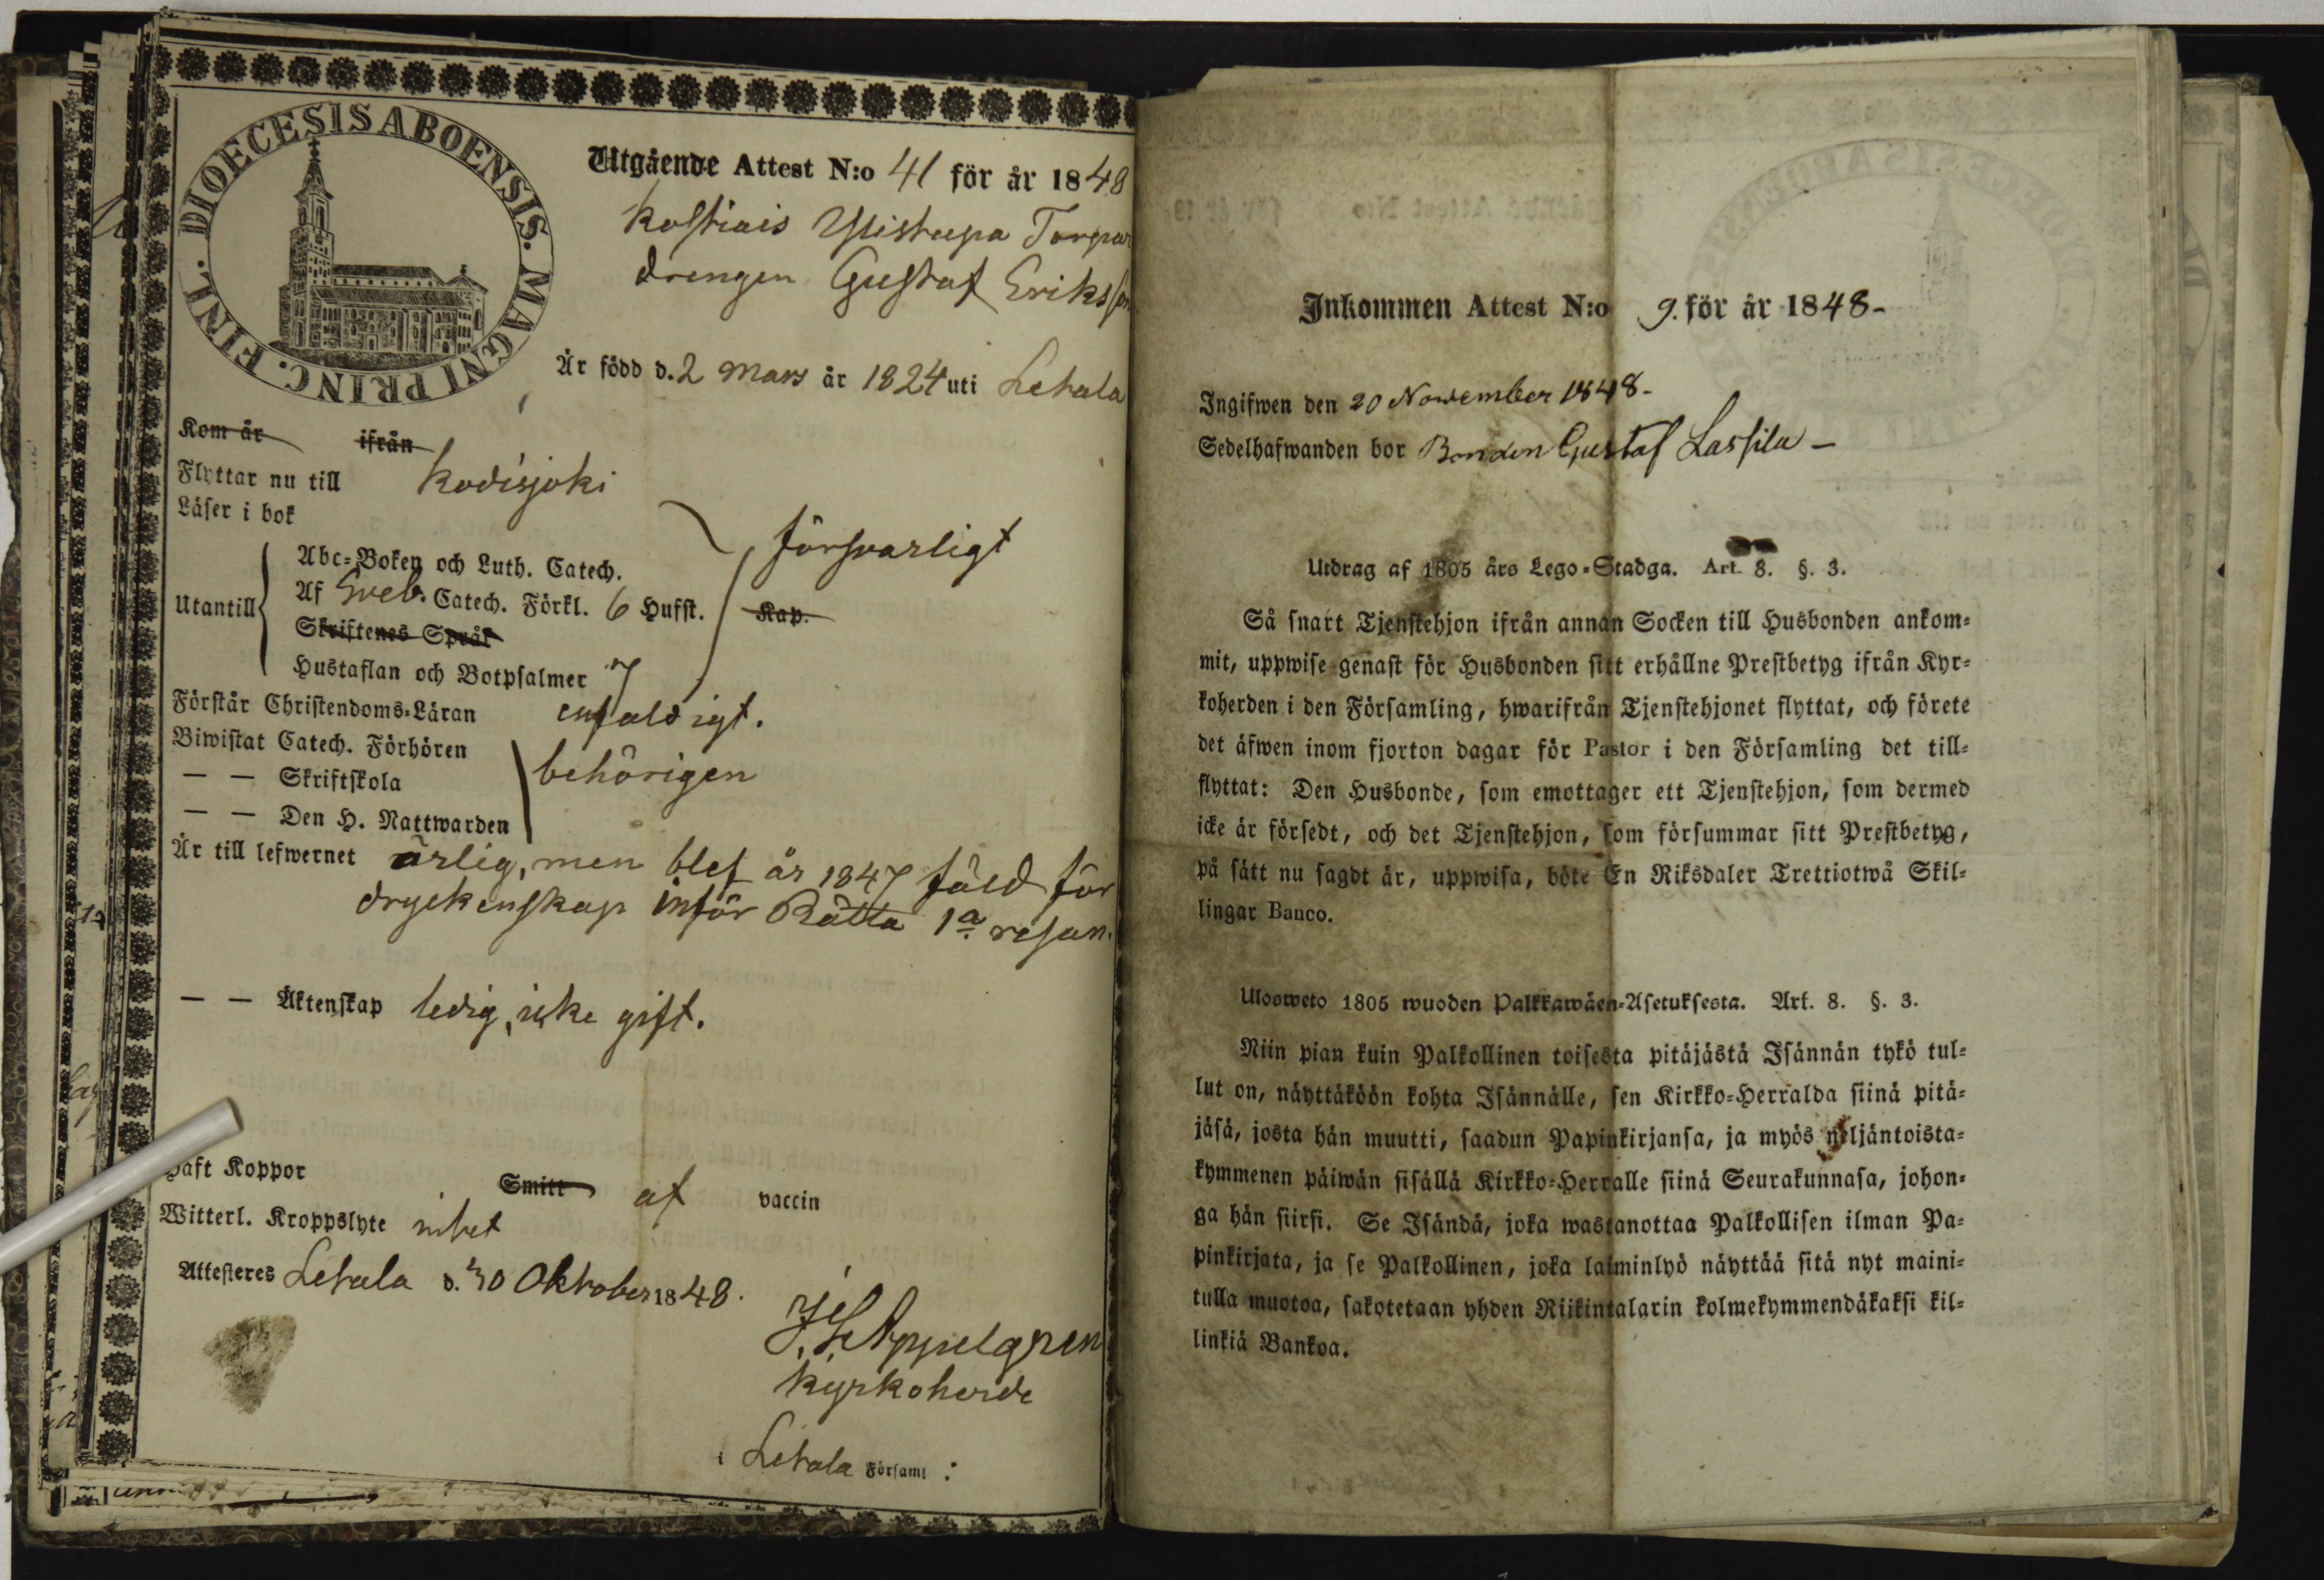 DIOECESIS ABOENSIS. MAGNI PRINC. FINL.
Utgående Attest N:o 41 för år 1848
Kostiais Ylistupa Torpar
drengen Gustaf Eriksson
Är född d. 2 Mars år 1824 uti Letala
Kom år ifrån
Flyttar nu till Kodisjoki
Läser i bok
försvarligt
Abc-Boken och Luth. Catech.
Utantill Af Sveb. Catech. Förkl. 6 Hufst. Kap.
Skriftenes Språk
Hustaflan och Botpsalmer 7
Förstår Christendoms-Läran enfaldigt.
Biwistat Catech. Förhören
— — Skriftskola behörigen
— — Den H. Nattwarden
Är till lefwernet ärlig, men blef år 1847 fäld för
dryckenskap inför Rätta 1a resan.
— — Äktenskap ledig, icke gift.
Haft Koppor Smitt af vaccin
Witterl. Kroppslyte intet
Attesteres Letala d. 30 Oktober 1848.
Appelgren
Kyrkoherde
i Letala Församl:
Inkommen Attest N:o 9. för år 1848-
Ingifwen den 20 November 1848-
Sedelhafwanden bor Bonden Gustaf Lassila -
Utdrag af 1805 års Lego-Stadga. Art. 8. §. 3.
Så snart Tjenstehjon ifrån annan Socken till Husbonden ankom-
mit, uppwise genast för Husbonden sitt erhållne Prestbetyg ifrån Kyr-
koherden i den Församling, hwarifrån Tjenstehjonet flyttat, och förete
det äfwen inom fjorton dagar för Pastor i den Församling det till-
flyttat: Den Husbonde, som emottager ett Tjenstehjon, som dermed
icke är försedt, och det Tjenstehjon, som försummar sitt Prestbetyg,
på sätt nu sagdt är, uppwisa, böte En Riksdaler Trettiotwå Skil-
lingar Banco.
Ulosweto 1805 wuoden Palkkawäen-Asetuksesta. Art. 8. §. 3.
Niin pian kuin Palkollinen toisesta pitäjästä Isännän tykö tul-
lut on, näyttäköön kohta Isännälle, sen Kirkko-Herralda siinä pitä-
jäsä, josta hän muutti, saadun Papinkirjansa, ja myös neljäntoista-
kymmenen päiwän sisällä Kirkko-Herralle siinä Seurakunnasa, johon-
ga hän siirsi. Se Isändä, joka wastanottaa Palkollisen ilman Pa-
pinkirjata, ja se Palkollinen, joka laiminlyö näyttää sitä nyt maini-
tulla muotoa, sakotetaan yhden Riikintalarin kolmekymmendäkaksi kil-
linkiä Bankoa.